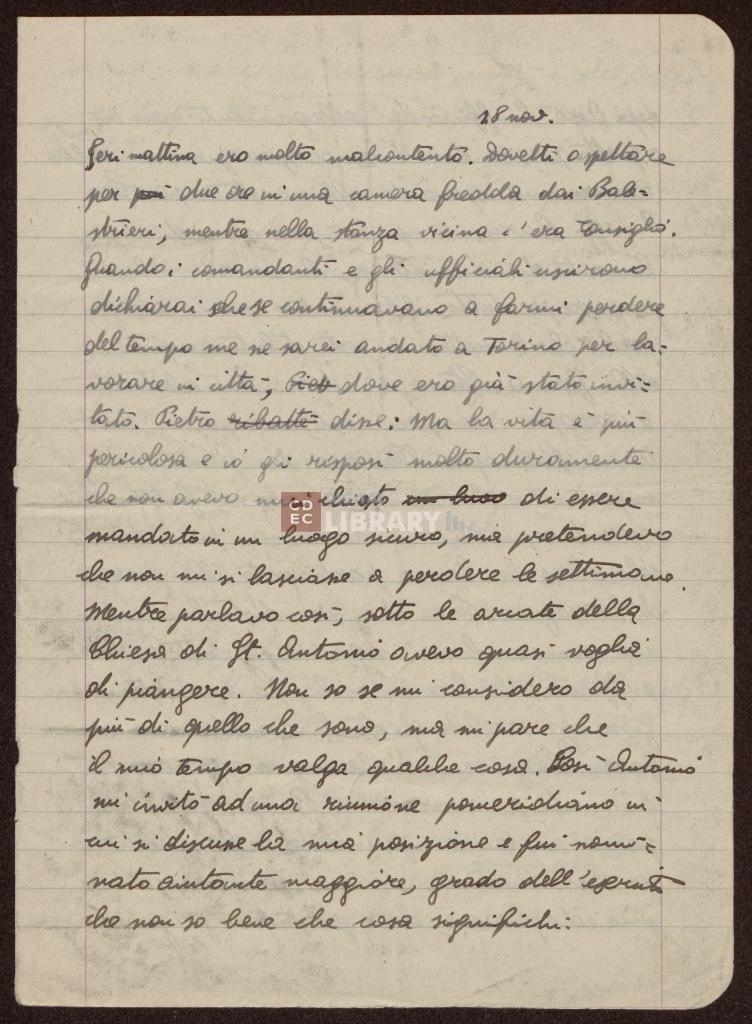 28 nov.
Ieri mattina ero molto malcontento. Dovetti aspettare
per più due ore in una camera fredda dai Bale-
strieri, mentre nella stanza vicina c'era Consiglio.
Quando i comandanti e gli ufficiali uscirono
dichiarai che se continuavano a farmi perdere
del tempo me ne sarei andato a Torino per la-
vorare in città, dove ero già stato invi-
tato. Pietro ribatté disse: Ma la vita è più
pericolosa e io gli risposi molto duramente
che non avevo mai chiesto un luogo di essere
mandato in un luogo sicuro, ma pretendevo
che non mi si lasciasse a perdere le settimane.
Mentre parlavo così, sotto le arcate della
Chiesa di St. Antonio avevo quasi voglia
di piangere. Non so se mi considero da
più di quello che sono, ma mi pare che
il mio tempo valga qualche cosa. Così Antonio
mi invitò ad una riunione pomeridiana in
cui si discusse la mia posizione e fui nomi-
nato aiutante maggiore, grado dell'esercito
che non so bene che cosa significhi:
CDEC LIBRARY